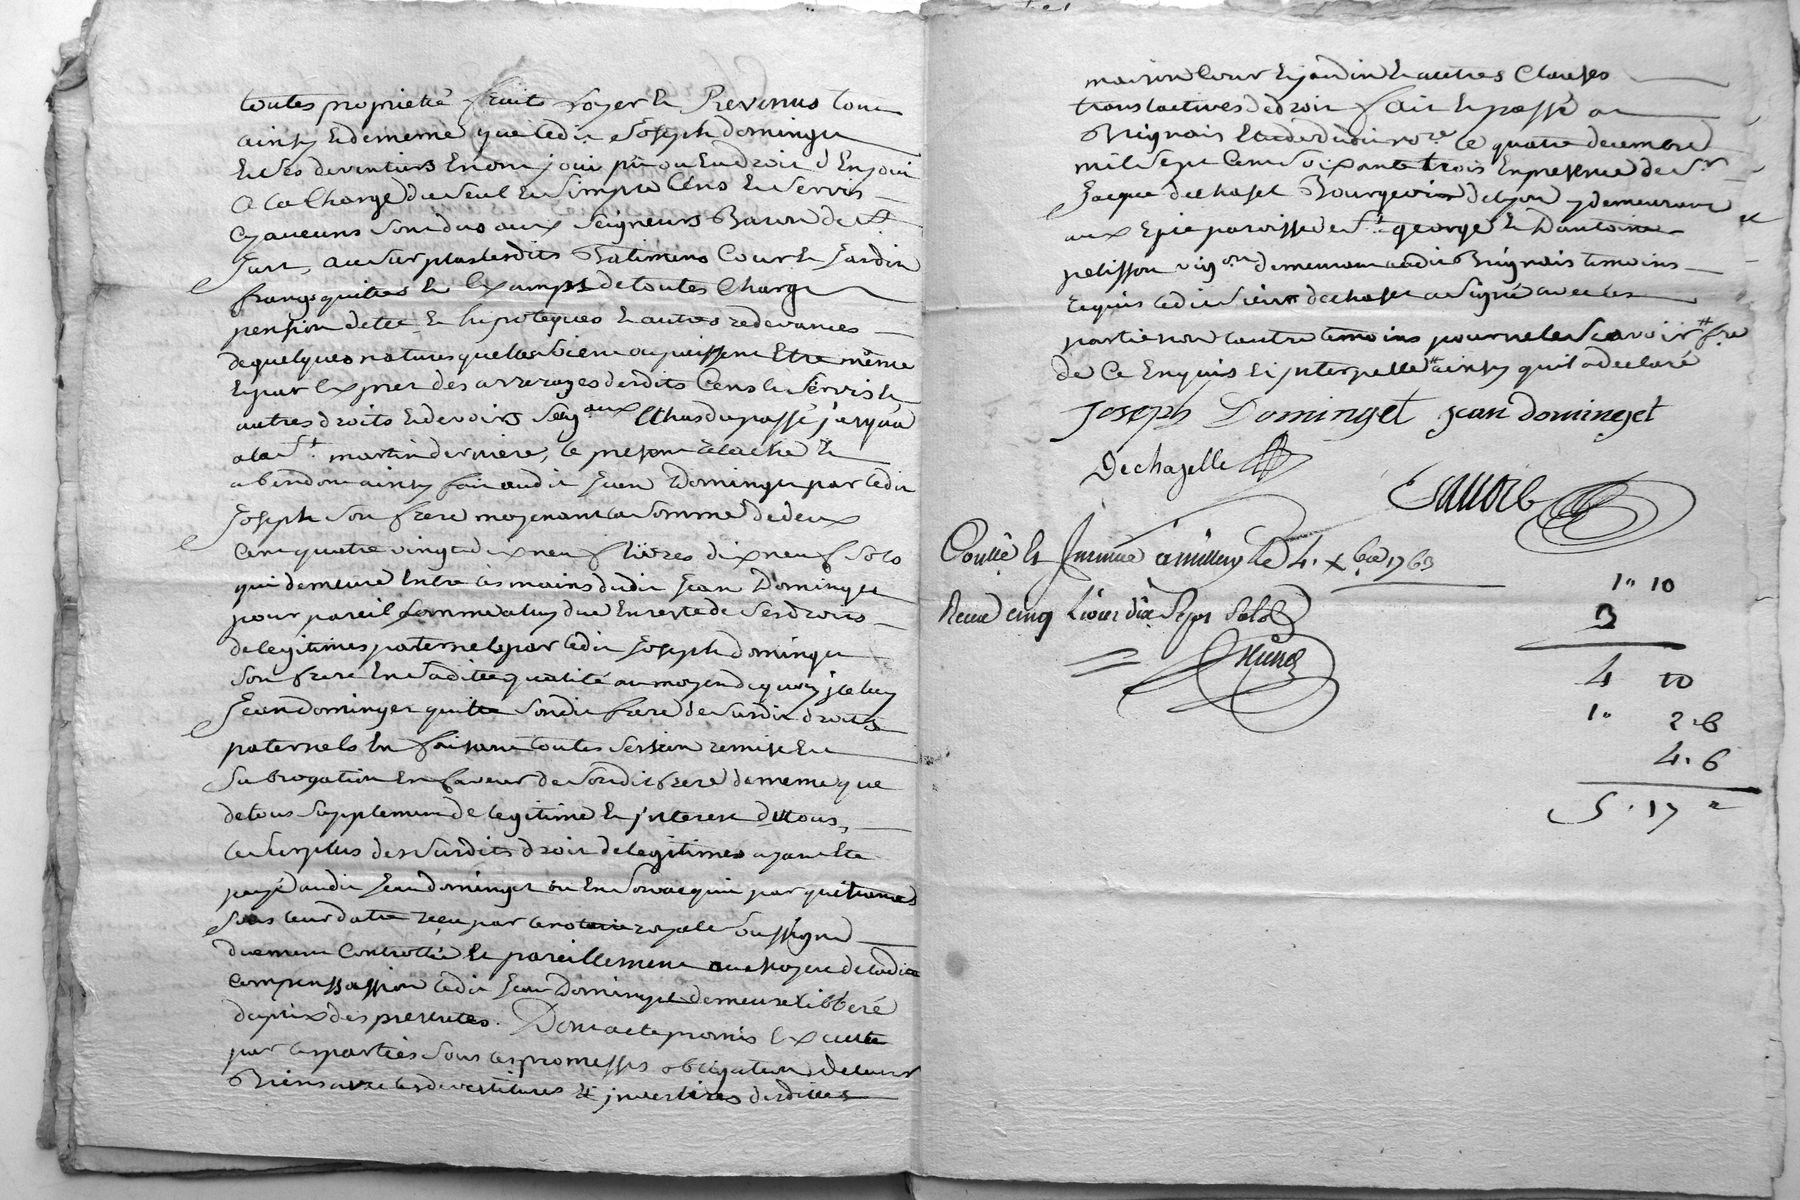 toutes proprieté fruits loyer et Revenus tout
ainsy et dememe que ledit Joseph dominget
et ses devantiers en ont joui pû ou eu droit d'En jouir
a la Charge du seul et simple Cens et servis
sy aucuns sont dus aux seigneurs Baron de St.
Jurs, au surplus lesdits Batimens Cour et Jardin
francs quittes et Exempts de toutes Charge
pension dette et hipoteques et autres redevances
de quelques natures quelles soient ou puissent Etre même
et par Exprez des arrerages desdits Cens et servis et
autres droits et devoirs Seig.aux Echus du passé jusqu'a
a la St. martin derniere, le present relache et
abendon ainsy fait audit Jean Dominger par ledit
Joseph son frere moyenant la somme de deux
Cent quatre vingt dix neuf livres dix neuf sols
qui demeure Entre les mains dudit Jean Domingez
pour pareil somme a luy due en reste de ses droits
de legitimes paternels par ledit Joseph domingez
son frere en sa ditte qualité au moyen de quoy jceluy
Jean dominger quitte sondit frere de susdits droits
paternels en faisant toutes session remise et
subrogation en faveur de sondit frere dememe que
de tous supplement de legitime et jnterest du tous,
le surplus des susdits droit de legitimes ayant Ete
payé audit Jean dominget ou en son acquit par quittances
sous leur datte reçu par le notaire royale soussigné
duement Controllée et pareillement au moyen de ladite
compensassion ledit Jean Domingez demeure libberé
du prix des presentes. Dont acte promis Executte
par les parties sous les promesses obligation de leurs
Biens avec les devestitures et jnvestires desdittes
maison Cour et jardin et autres Clauses
translactives de droit fait et passé a
Brignais Etude dudit no.re le quatre decembre
mil sept Cent soixante trois En presence de Sr.
Jacque dechasel Bourgeois de Lyon y demeurant
aux Epie paroisse de St. george et D'antoine
pelisson vig.on demeurant audit Brignais temoins
requis ledit sieur dechasel a signé avec les
partie non l'autre temoins pour ne le scavoir # fre
de Ce Enquis et jnterpellé # ainsy qu'il a declaré
Joseph Dominget jean domingjet
Dechazelle
Contlé et Jnsinué a millery le 4. xbre 1763
Receu cinq Livres dix sept sols
1" 10
3
4 10
1" 2.6
4.6
5.17 "